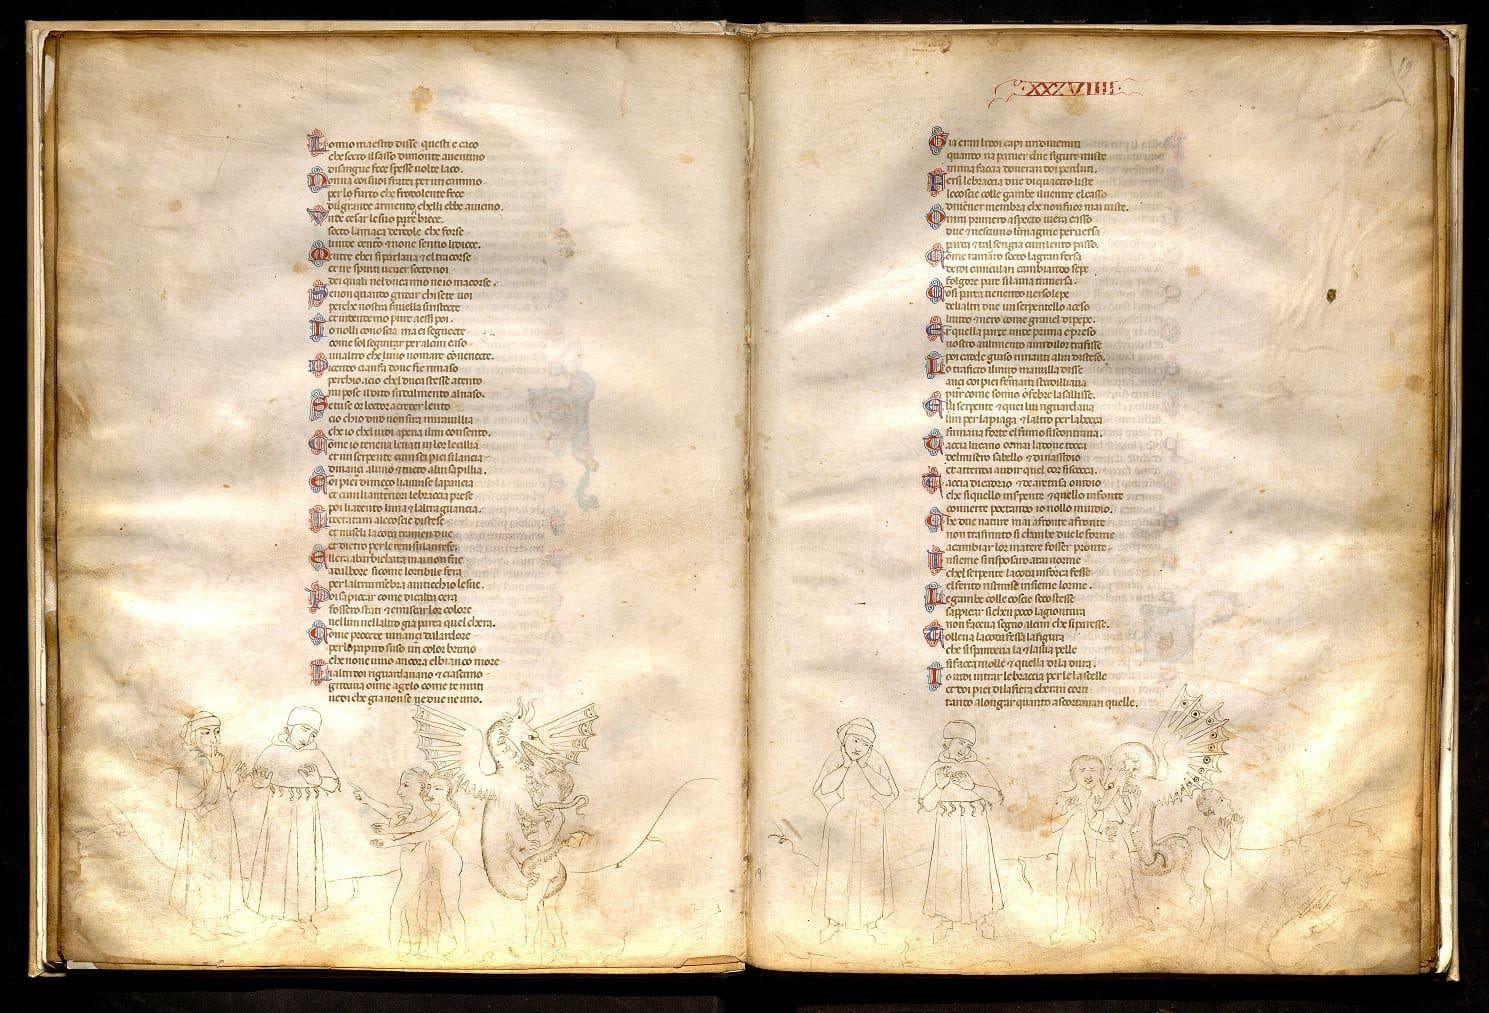 Lo mio maestro disse questi e caco
che socto il sasso di monte auentino
di sangue fece spesse uolte laco.
Non ua coi suoi fratei per un camino
per lo furto che frodolente fece
del grande armento chelli ebbe auicino.
Vnde cesar le sue opre biece.
socto la maça dercole che forse
linde cento & none sentio le diece.
Mentre chei si parlaua & el trascorse
et tre spiriti uener socto noi
dei quali nel duca mio ne io macorse.
Se non quando gridar chi sete uoi
perche nostra fauella si ristecte
et intendemo pure a essi poi.
Io nolli conoscea ma ei seguecte
come sol seguitar per alcun caso
un altro che luno nomare conuenecte.
Dicendo cianfa doue fie rimaso
perchio acio chel duca stesse atento
mi posi il dito su dal mento al naso.
Se tu se or lector a creder lento
cio chio diro non sira marauillia
che io chel uidi apena il mi consento.
Come io tenea leuati in lor le cillia
et un serpente con sei pie si lancia
dinanci aluno & tucto alui sapillia.
Coi pie di meço li auinse la pancia
et cum li anteriori le braccia prese
poi li adento luna & laltra guancia.
Li deretani a le coscie distese
et miseli la coda tramendue
et dietro per le reni su la ritese.
Ellera abarbicata mai non fue
ad albore si come lorribile fera
per laltrui membra auiticchio le sue.
Poi sapiccar come di calda cera
fossero stati & mischiar lor colore
ne lun ne laltro gia parea quel chera.
Come procede innanci da lardore
per lo papiro suso un color bruno
che non e nero ancora el bianco more
Li altri doi riguardauano & ciascuno
gridaua oime agelo come te muti
uedi che gia non se ne due ne uno.
XXXVIIII
19
Gia eran li doi capi un diuenuti
quando na paruer due figure miste
in una faccia doueran doi perduti.
Fersi le braccia due di quatro liste
le coscie colle gambe il uentre el casso
diuener membra che non fuor mai uiste.
Onni primero aspecto iuera casso
due & nesuno limagine peruersa
parea & tal sen gia cum lento passo.
Come ramarro socto la gran fersa
dei di caniculari cambiando sepe
folgore pare si la uia trauersa.
Cosi parea uenendo uerso lepe
deli altri due un serpentello acceso
liuido & nero come granel di pepe.
Et quella parte unde prima e preso
nostro alimento a un dilor trafisse
poi cadde giuso innanti alui disteso.
Lo trafitto il miro ma nulla disse
anci coi pie fermati sbadilliaua
pur come sonno o febre lasalisse.
Elli il serpente & quei lui riguardaua
lun per la piaga & laltro per la bocca
fumaua forte el fumo si scontraua.
Taccia lucano omai la doue tocca
del misero sabello & di nassidio
et attenda audir quel cor si scocca.
Taccia di cadmo & de aretusa ouidio
che si quello in serpente & quello in fonte
conuerte poetando io nollo inuidio.
Che due nature mai a fronte a fronte
non trasmuto si chambe due le forme
a cambiar lor matere fosser pronte.
Insieme si risposaro a tai norme
chel serpente la coda in forca fesse
el ferito ristrinse insieme lorme.
Le gambe colle coscie seco stesse
sappiccar si chen poco la giontura
non faceua segno alcun che si paresse.
Tollea la coda fessa la figura
che si perdeua la & la sua pelle
si facea molle & quella di la dura.
Io uidi intrar le braccia per le lascelle
et doi pie di la fiera cheran corti
tanto alongar quanto ascortauan quelle.